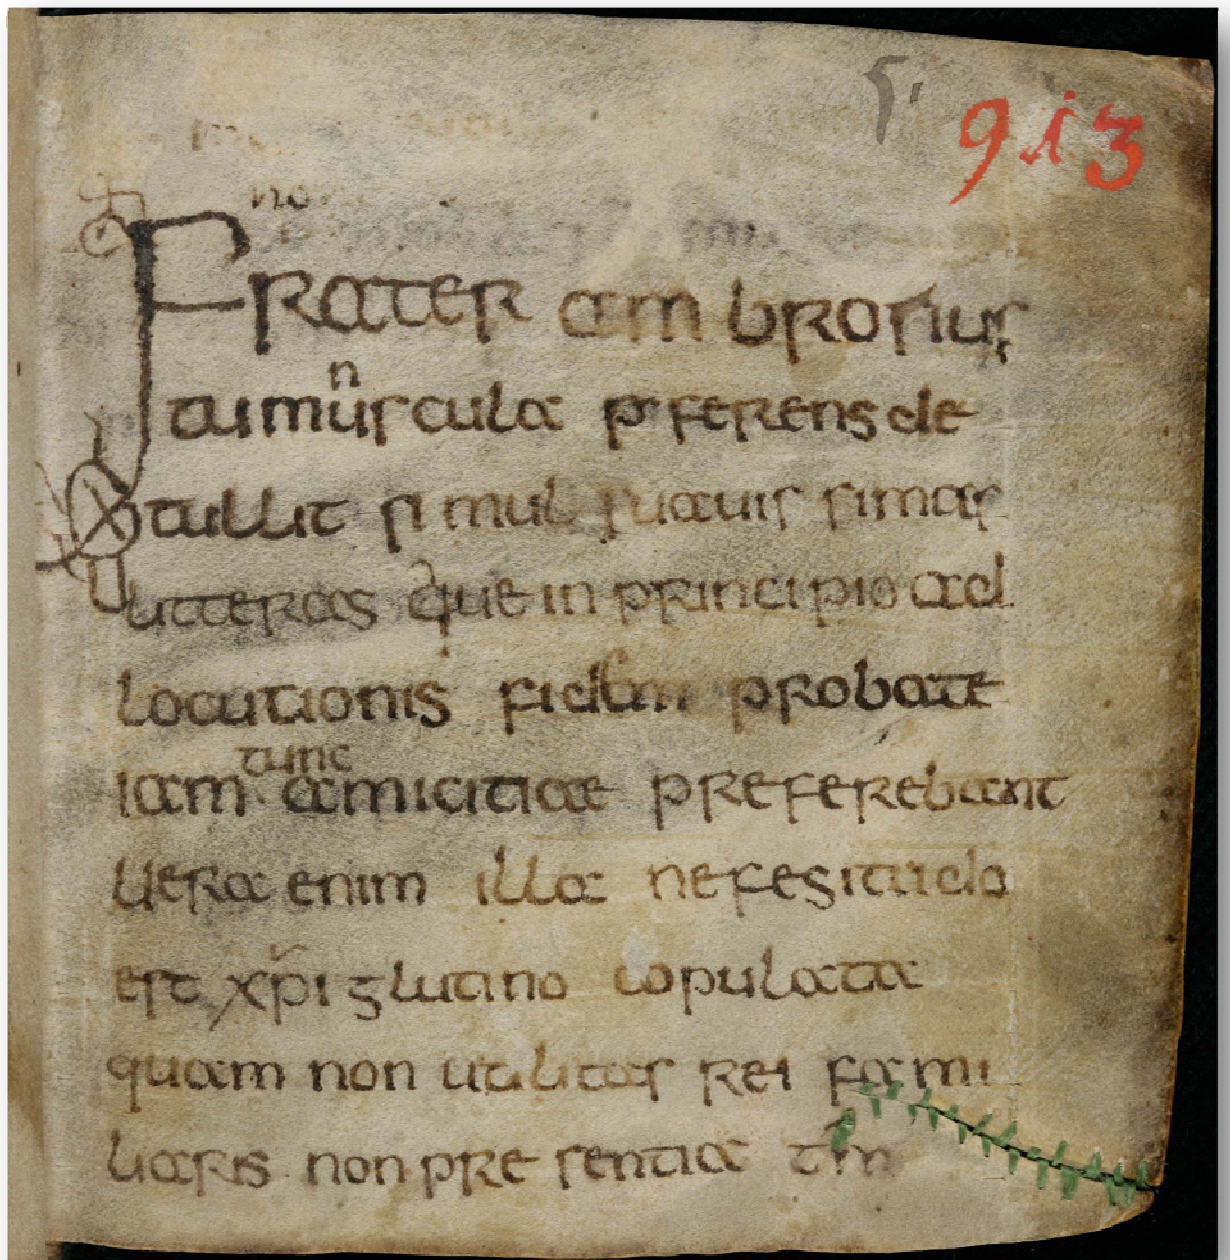 913
no
FRATER ambrosius
n
tui muuscula pferens de
tullit simul suauis simas
litteras que in principio ad
locutionis fidem probate
tunc
iam amicitiae preferebant
uera enim illa nefesitudo
est xpi glutino copulata
quam non utilitas rei fami
liaris non pre sentia tm